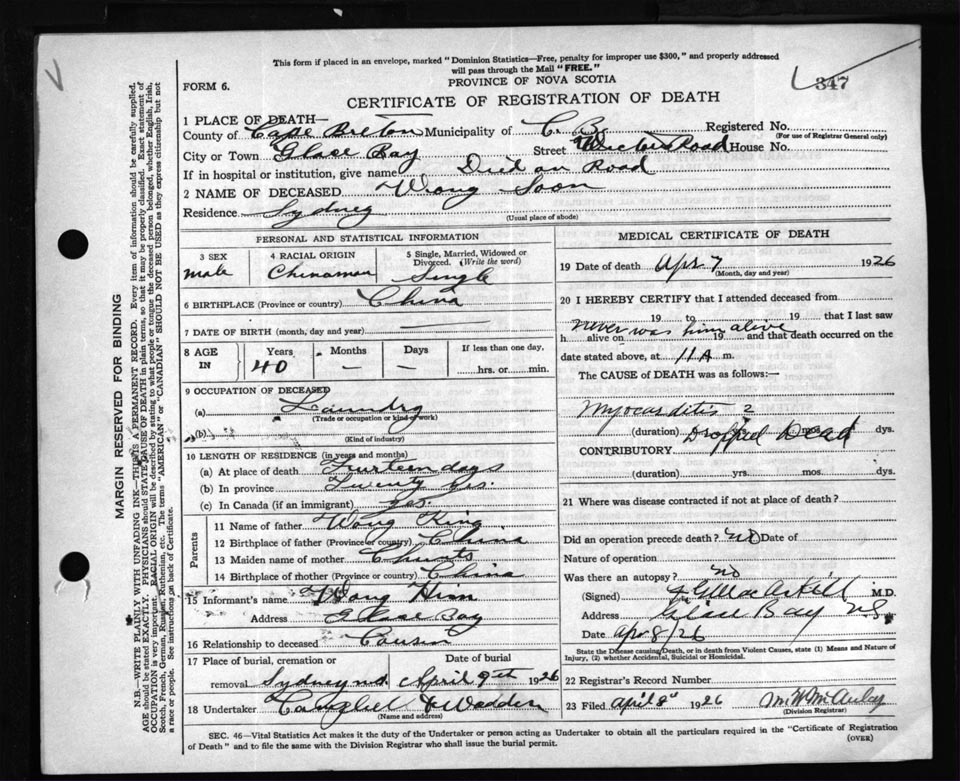 This form if placed in an envelope, marked "Dominion Statistics—Free, penalty for improper use $300," and properly addressed
will pass through the Mail "FREE."
347
FORM 6.
PROVINCE OF NOVA SCOTIA
CERTIFICATE OF REGISTRATION OF DEATH
1 PLACE OF DEATH—
County of Cape Breton Municipality of C. B. Registered No.
(For use of Registrar General only)
City or Town Glace Bay Street Road House No.
If in hospital or institution, give name Died on Road
2 NAME OF DECEASED Wong Soon
Residence Sydney
(Usual place of abode)
PERSONAL AND STATISTICAL INFORMATION
3 SEX 4 RACIAL ORIGIN 5 Single, Married, Widowed or Divorced. (Write the word)
male Chinaman Single
6 BIRTHPLACE (Province or country) China
7 DATE OF BIRTH (month, day and year)
8 AGE IN Years Months Days If less than one day,
40 — — hrs. or min.
9 OCCUPATION OF DECEASED
(a) Laundry
(Trade or occupation or kind of work)
(b)
(Kind of industry)
10 LENGTH OF RESIDENCE (in years and months)
(a) At place of death Fourteen days
(b) In province Twenty yrs.
(c) In Canada (if an immigrant) yrs.
Parents
11 Name of father Wong King
12 Birthplace of father (Province or country) China
13 Maiden name of mother
14 Birthplace of mother (Province or country) China
15 Informant's name Wong Him
Address Glace Bay
16 Relationship to deceased Cousin
17 Place of burial, cremation or removal Date of burial
Sydney April 9th 1926
18 Undertaker
(Name and address)
MEDICAL CERTIFICATE OF DEATH
19 Date of death Apr 7 1926
(Month, day and year)
20 I HEREBY CERTIFY that I attended deceased from
19 to 19 that I last saw
never was him alive
h alive on 19 and that death occurred on
date stated above, at 11 A m.
The CAUSE OF DEATH was as follows:—
Myocarditis 2
(duration) yrs. mos. dys.
Dropped Dead
CONTRIBUTORY
(duration) yrs. mos. dys.
21 Where was disease contracted if not at place of death?
Did an operation precede death? no Date of
Nature of operation
Was there an autopsy? no
(Signed) M.D.
Address Glace Bay NS
Date Apr 8/26
State the Disease causing Death, or in death from Violent Causes, state (1) Means and Nature of
Injury, (2) whether Accidental, Suicidal or Homicidal.
22 Registrar's Record Number
23 Filed April 8 1926
(Division Registrar)
SEC. 46—Vital Statistics Act makes it the duty of the Undertaker or person acting as Undertaker to obtain all the particulars required in the "Certificate of Registration
of Death" and to file the same with the Division Registrar who shall issue the burial permit.
(OVER)
MARGIN RESERVED FOR BINDING
N.B.—WRITE PLAINLY WITH UNFADING INK—THIS IS A PERMANENT RECORD. Every item of information should be carefully supplied.
AGE should be stated EXACTLY. PHYSICIANS should STATE CAUSE OF DEATH in plain terms, so that it may be properly classified. Exact statement of
OCCUPATION is very important. RACIAL ORIGIN will be described by stating to what people or tongue the deceased person belonged, whether English, Irish,
Scotch, French, German, Russian, Ruthenian, etc. The terms "AMERICAN" or "CANADIAN" SHOULD NOT BE USED as they express citizenship but not
a race or people. See instructions on back of Certificate.